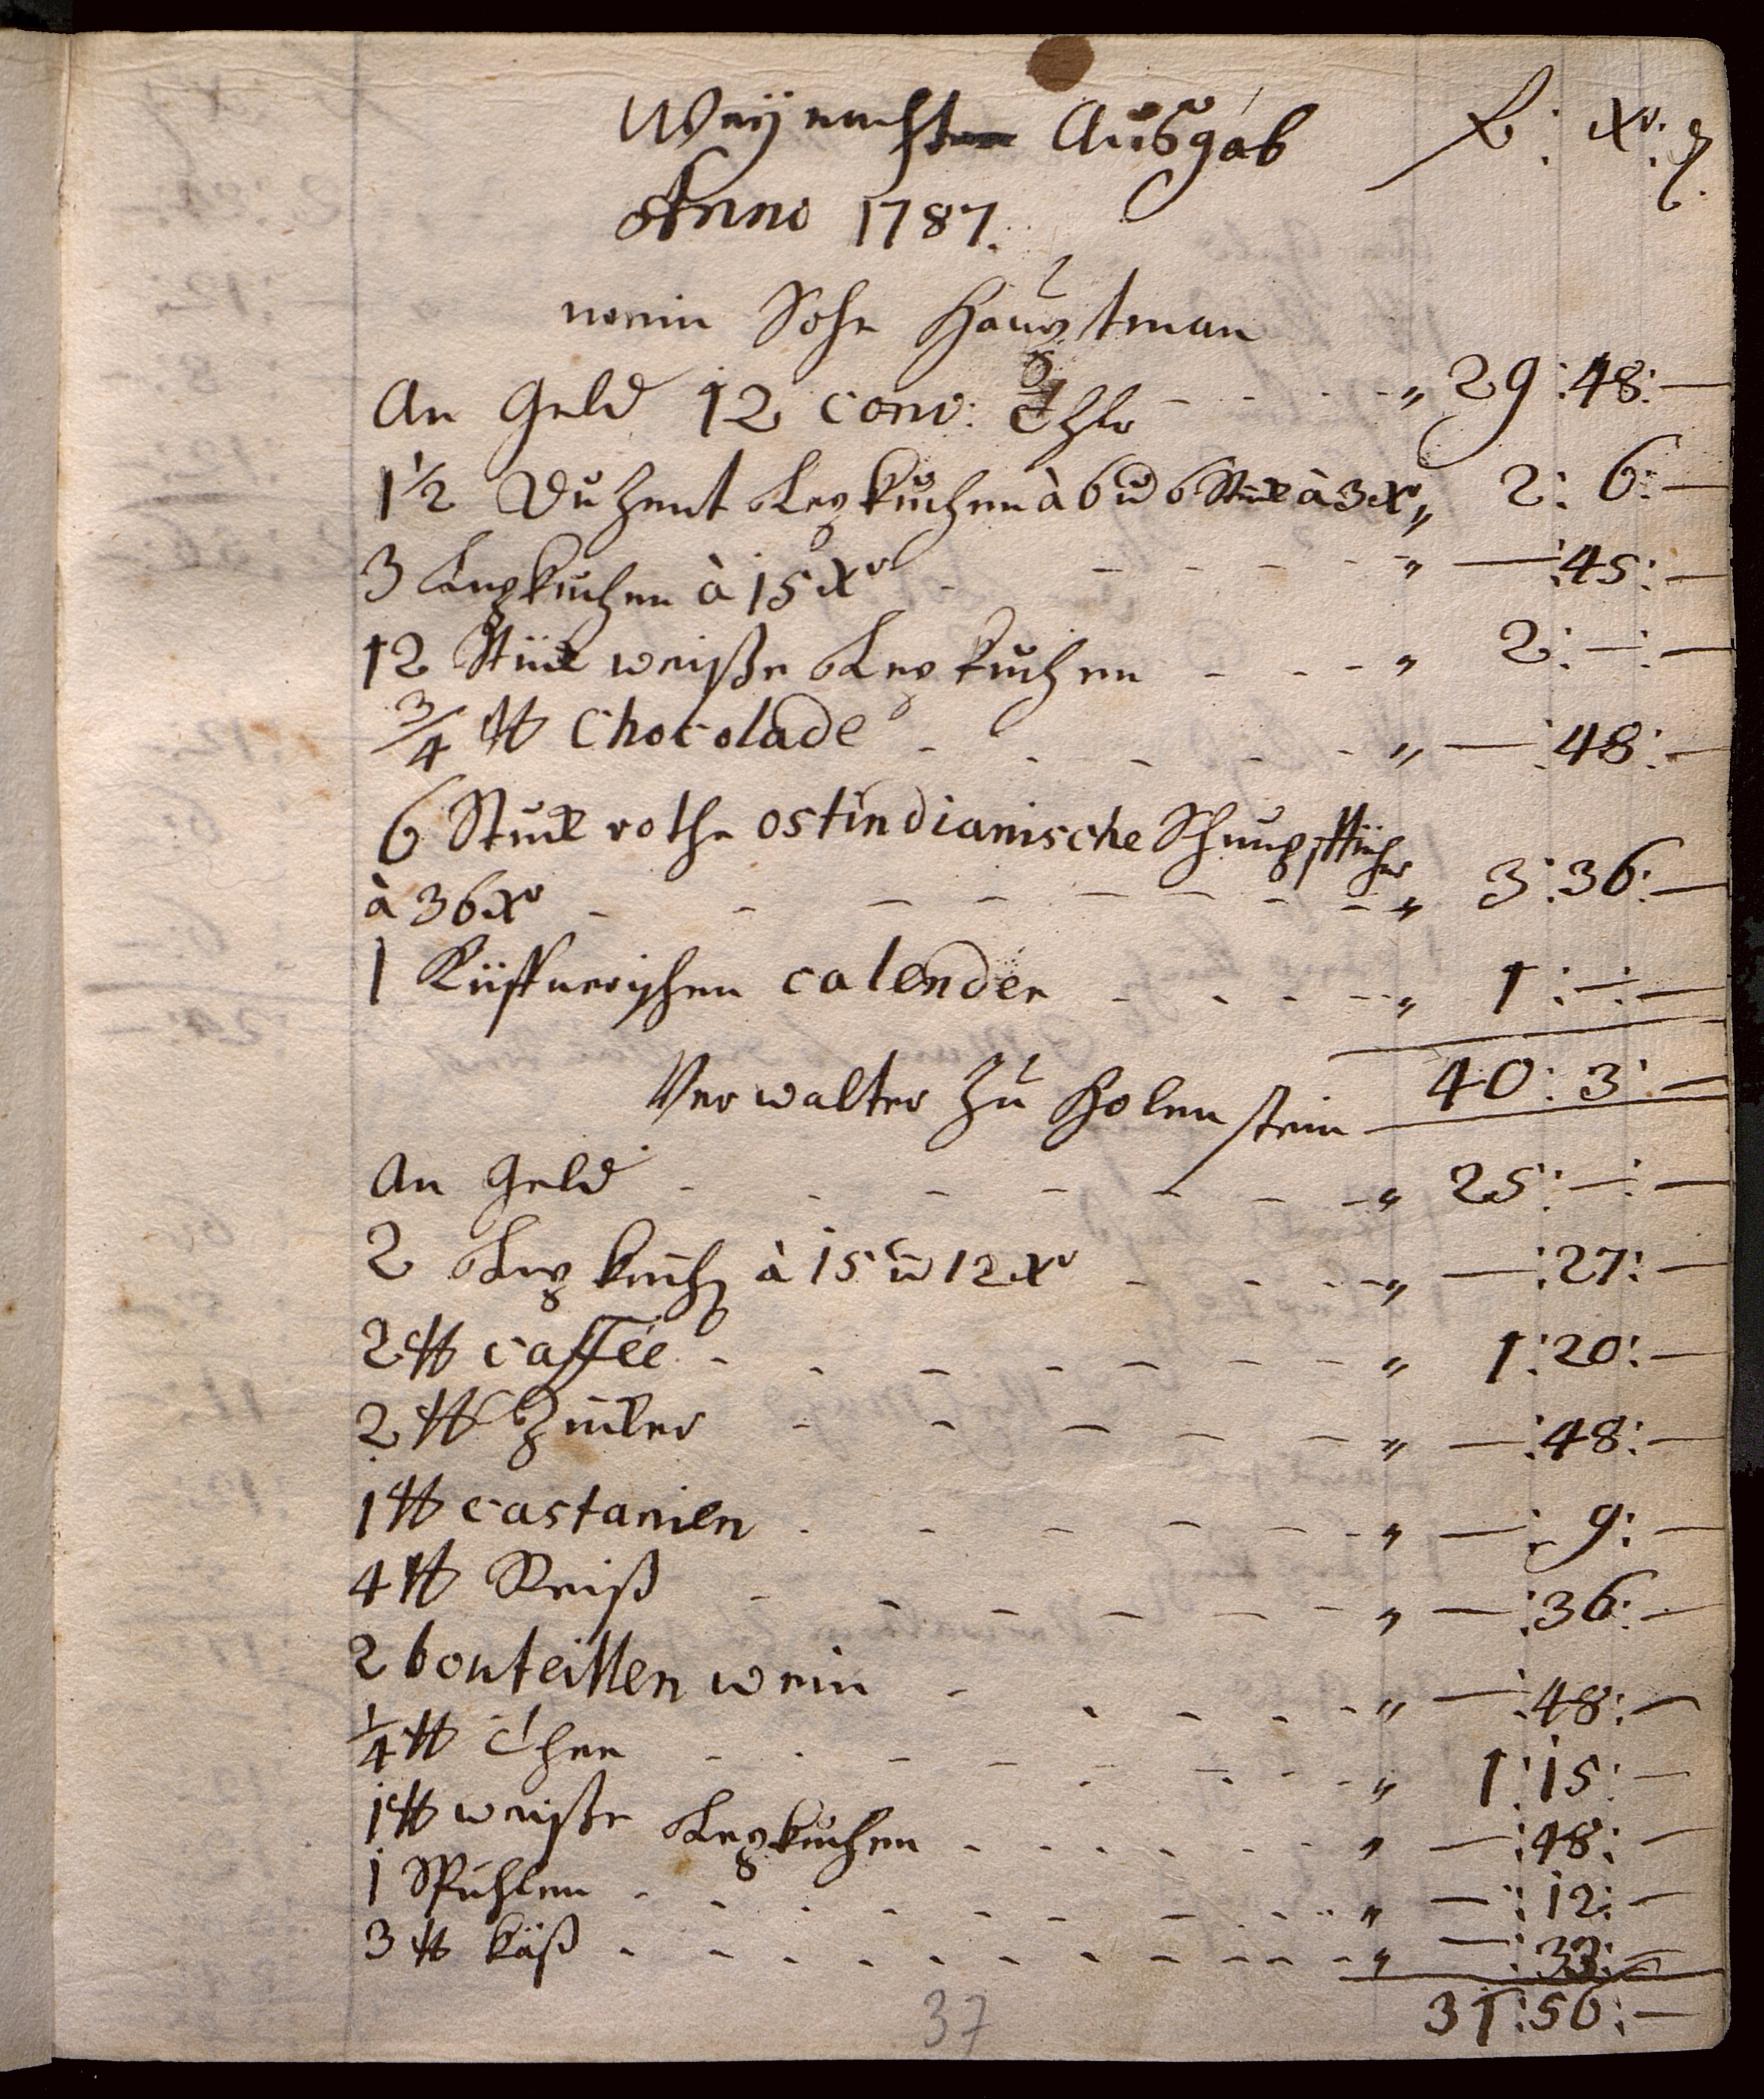 Weÿnachten Ausgab f: xr: ₰
Anno 1787.
mein Sohn Hauptman
An Geld 12 conv: Thlr - - - - " 29:48:—
1 1/2 Duzent Lepkuchen à 6 u 6 Stuck à 3 xr " 2: 6:—
3 Lepkuchen à 15 xr - - - - - " —:45:—
12 Stück weiße Lepkuchen - - - " 2:—:—
3/4 ℔ Chocolade - - - - - " —:48:—
6 Stuck rothe ostindianische Schnupftücher
à 36 xr - - - - - - - - " 3:36:—
1 Küffnerischen calender - - - - " 1:—:—
40: 3:—
Verwalter zu Holenstein
An Geld - - - - - - - " 25:—:—
2 Lepkuchen à 15 u 12 xr - - - - " —:27:—
2 ℔ caffée - - - - - - - " 1:20:—
2 ℔ Zucker - - - - - - " —:48:—
1 ℔ castanien - - - - - - " —: 9:—
4 ℔ Reiß - - - - - - - " —:36:—
2 bouteillen wein - - - - - " —:48:—
1/4 ℔ Thee - - - - - - - - " 1:15:—
1 ℔ weiße Lepkuchen - - - - - - " —:48:—
1 - - - - - - - - - " —:12:—
3 ℔ käß - - - - - - - - - - " —:33:—
31:56:—
37